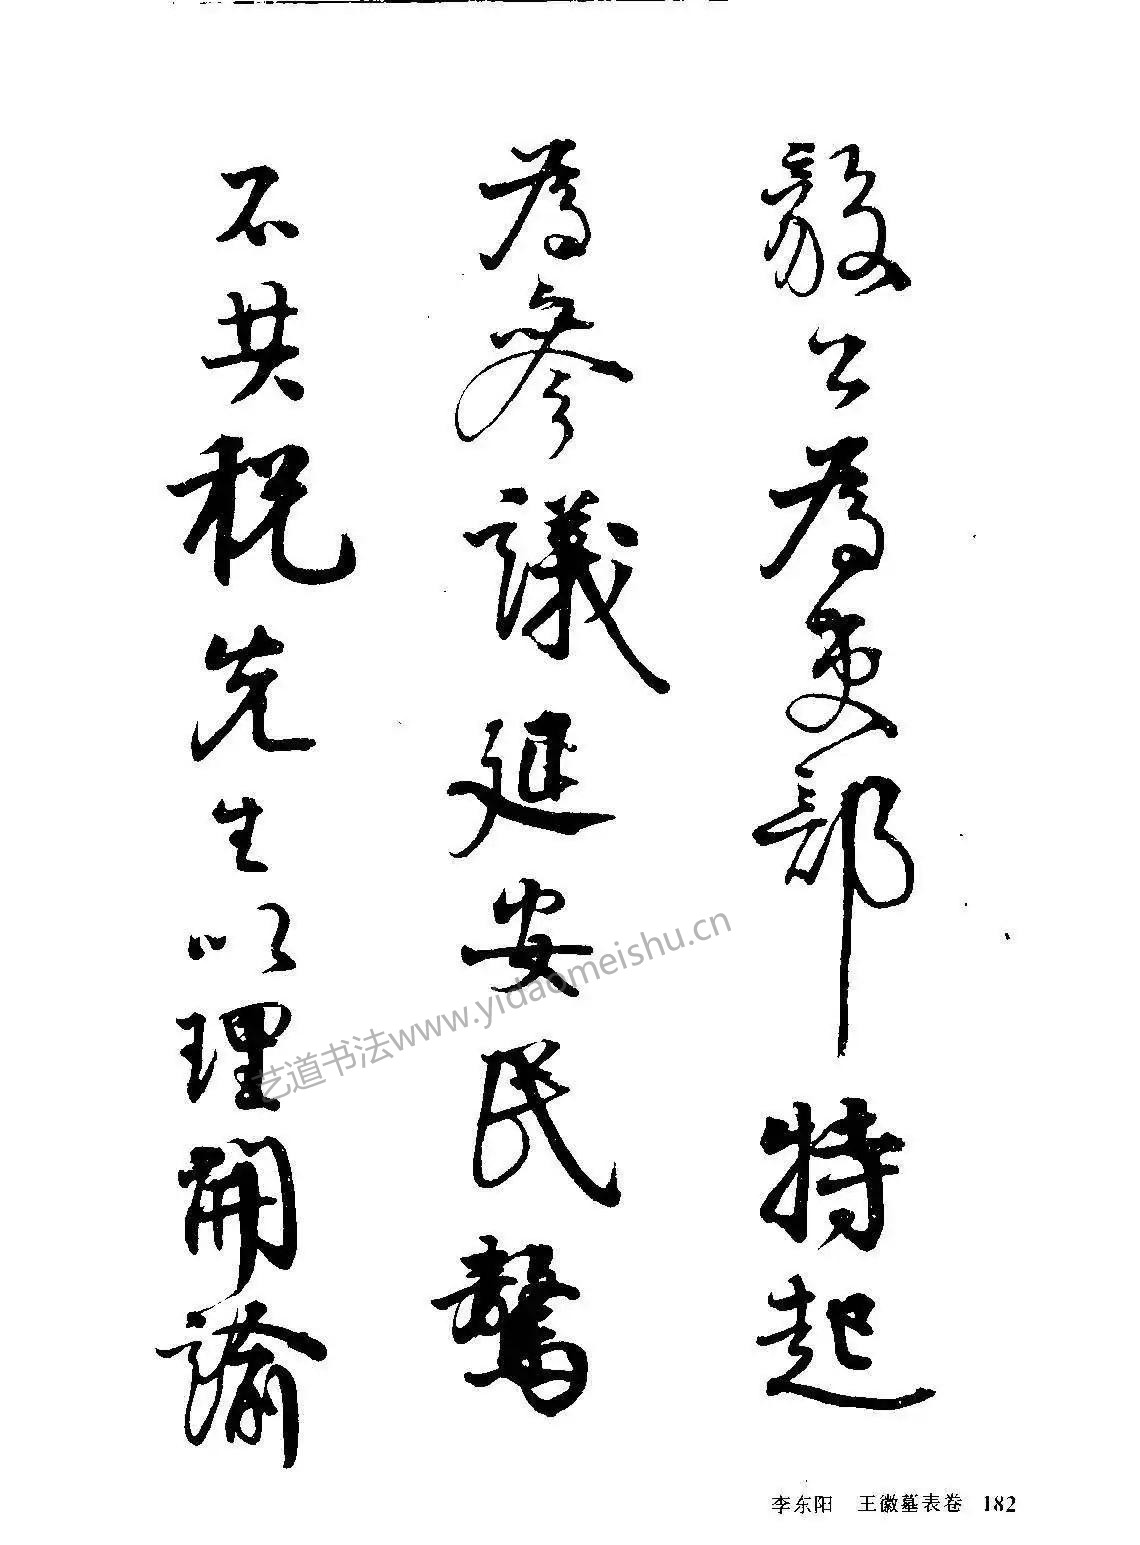 毅公為吏部特起
為參議延安民驁
不共税先生以理開諭
艺道书法www.yidaomeishu.cn
李东阳 王徽墓表卷 182